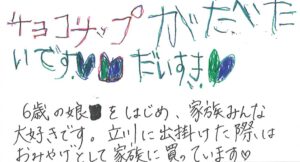 チョコチップがたべた
いです♥♥だいすき♥♥
6歳の娘■をはじめ、家族みんな
大好きです。立川に出掛けた際は
おみやげとして家族に買っています♡